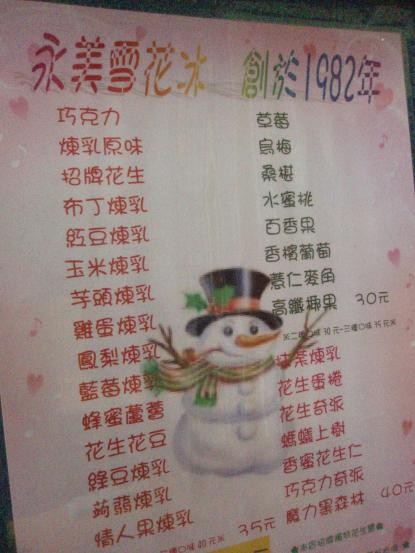 永美雪花冰 創於1982年
巧克力
煉乳原味
招牌花生
布丁煉乳
紅豆煉乳
玉米煉乳
芋頭煉乳
雞蛋煉乳
鳳梨煉乳
藍莓煉乳
蜂蜜蘆薈
花生花豆
綠豆煉乳
蒟蒻煉乳
情人果煉乳 35元
草莓
烏梅
桑椹
水蜜桃
百香果
香檳葡萄
薏仁麥角
高纖椰果 30元
米二種口味30元-三種口味35元米
抹茶煉乳
花生蛋捲
花生奇派
螞蟻上樹
香蜜花生仁
巧克力奇派
魔力黑森林 40元
三種口味40元米